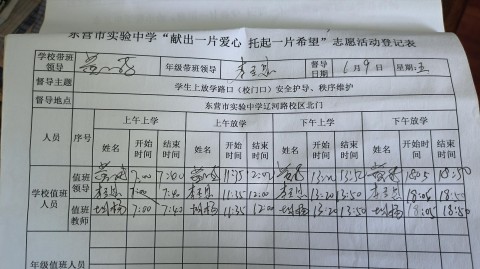 东营市实验中学“献出一片爱心 托起一片希望”志愿活动登记表
学校带班领导 年级带班领导 督导日期 6月9日 星期:五
督导主题 学生上放学路口（校门口）安全护导、秩序维护
督导地点 东营市实验中学辽河路校区北门
人员 序号 上午上学 上午放学 下午上学 下午放学
姓名 开始时间 结束时间 姓名 开始时间 结束时间 姓名 开始时间 结束时间 姓名 开始时间 结束时间
学校值班人员 值班领导 7:00 7:40 11:35 12:00 13:20 13:50 18:05 18:50
7:00 7:40 11:35 12:00 13:20 13:50 18:05 18:50
值班教师 7:00 7:40 11:35 12:00 13:20 13:50 18:05 18:50
年级值班人员